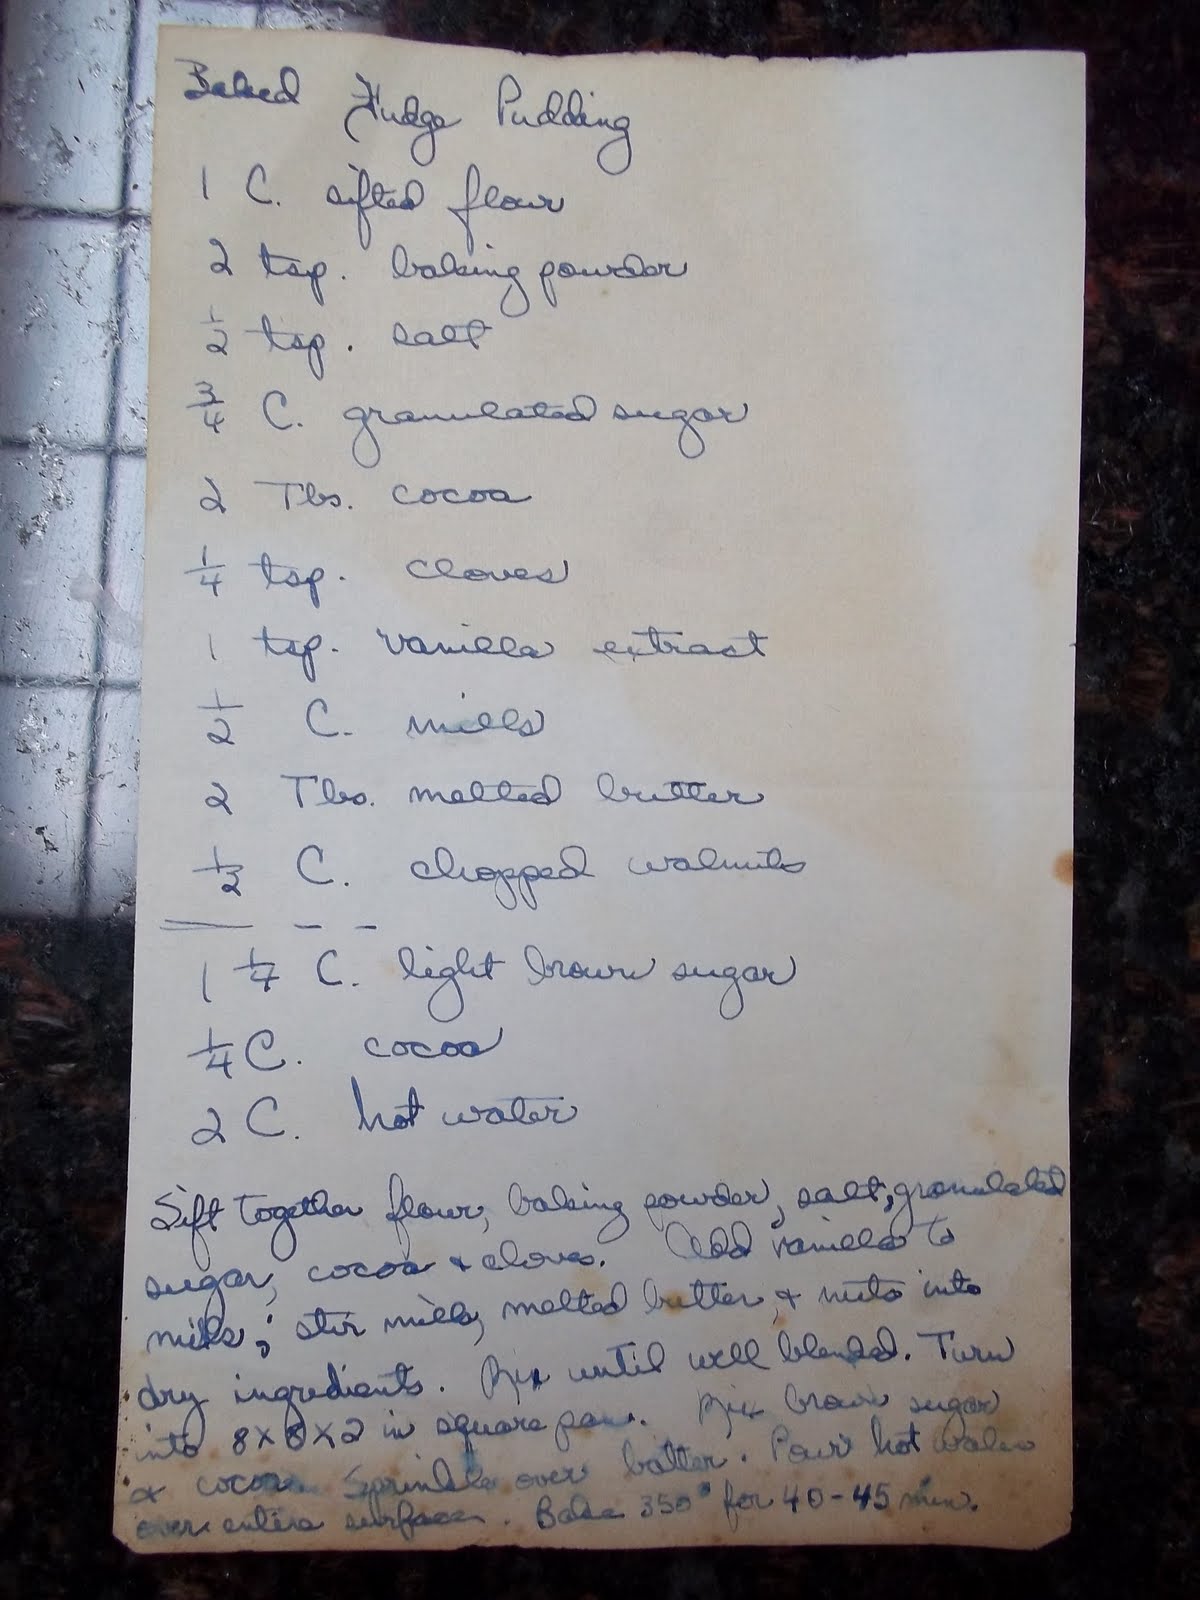 Baked Fudge Pudding
1 C. sifted flour
2 tsp. baking powder
1/2 tsp. salt
3/4 C. granulated sugar
2 Tbs. cocoa
1/4 tsp. cloves
1 tsp. vanilla extract
1/2 C. milk
2 Tbs. melted butter
1/2 C. chopped walnuts
1 1/4 C. light brown sugar
1/4 C. cocoa
2 C. hot water
Sift together flour, baking powder, salt, granulated
sugar, cocoa + cloves. Add vanilla to
milk; stir milk, melted butter, + nuts into
dry ingredients. Mix until well blended. Turn
into 8X8X2 in square pan. Mix brown sugar
+ cocoa. Sprinkle over batter. Pour hot water
over entire surface. Bake 350° for 40-45 min.